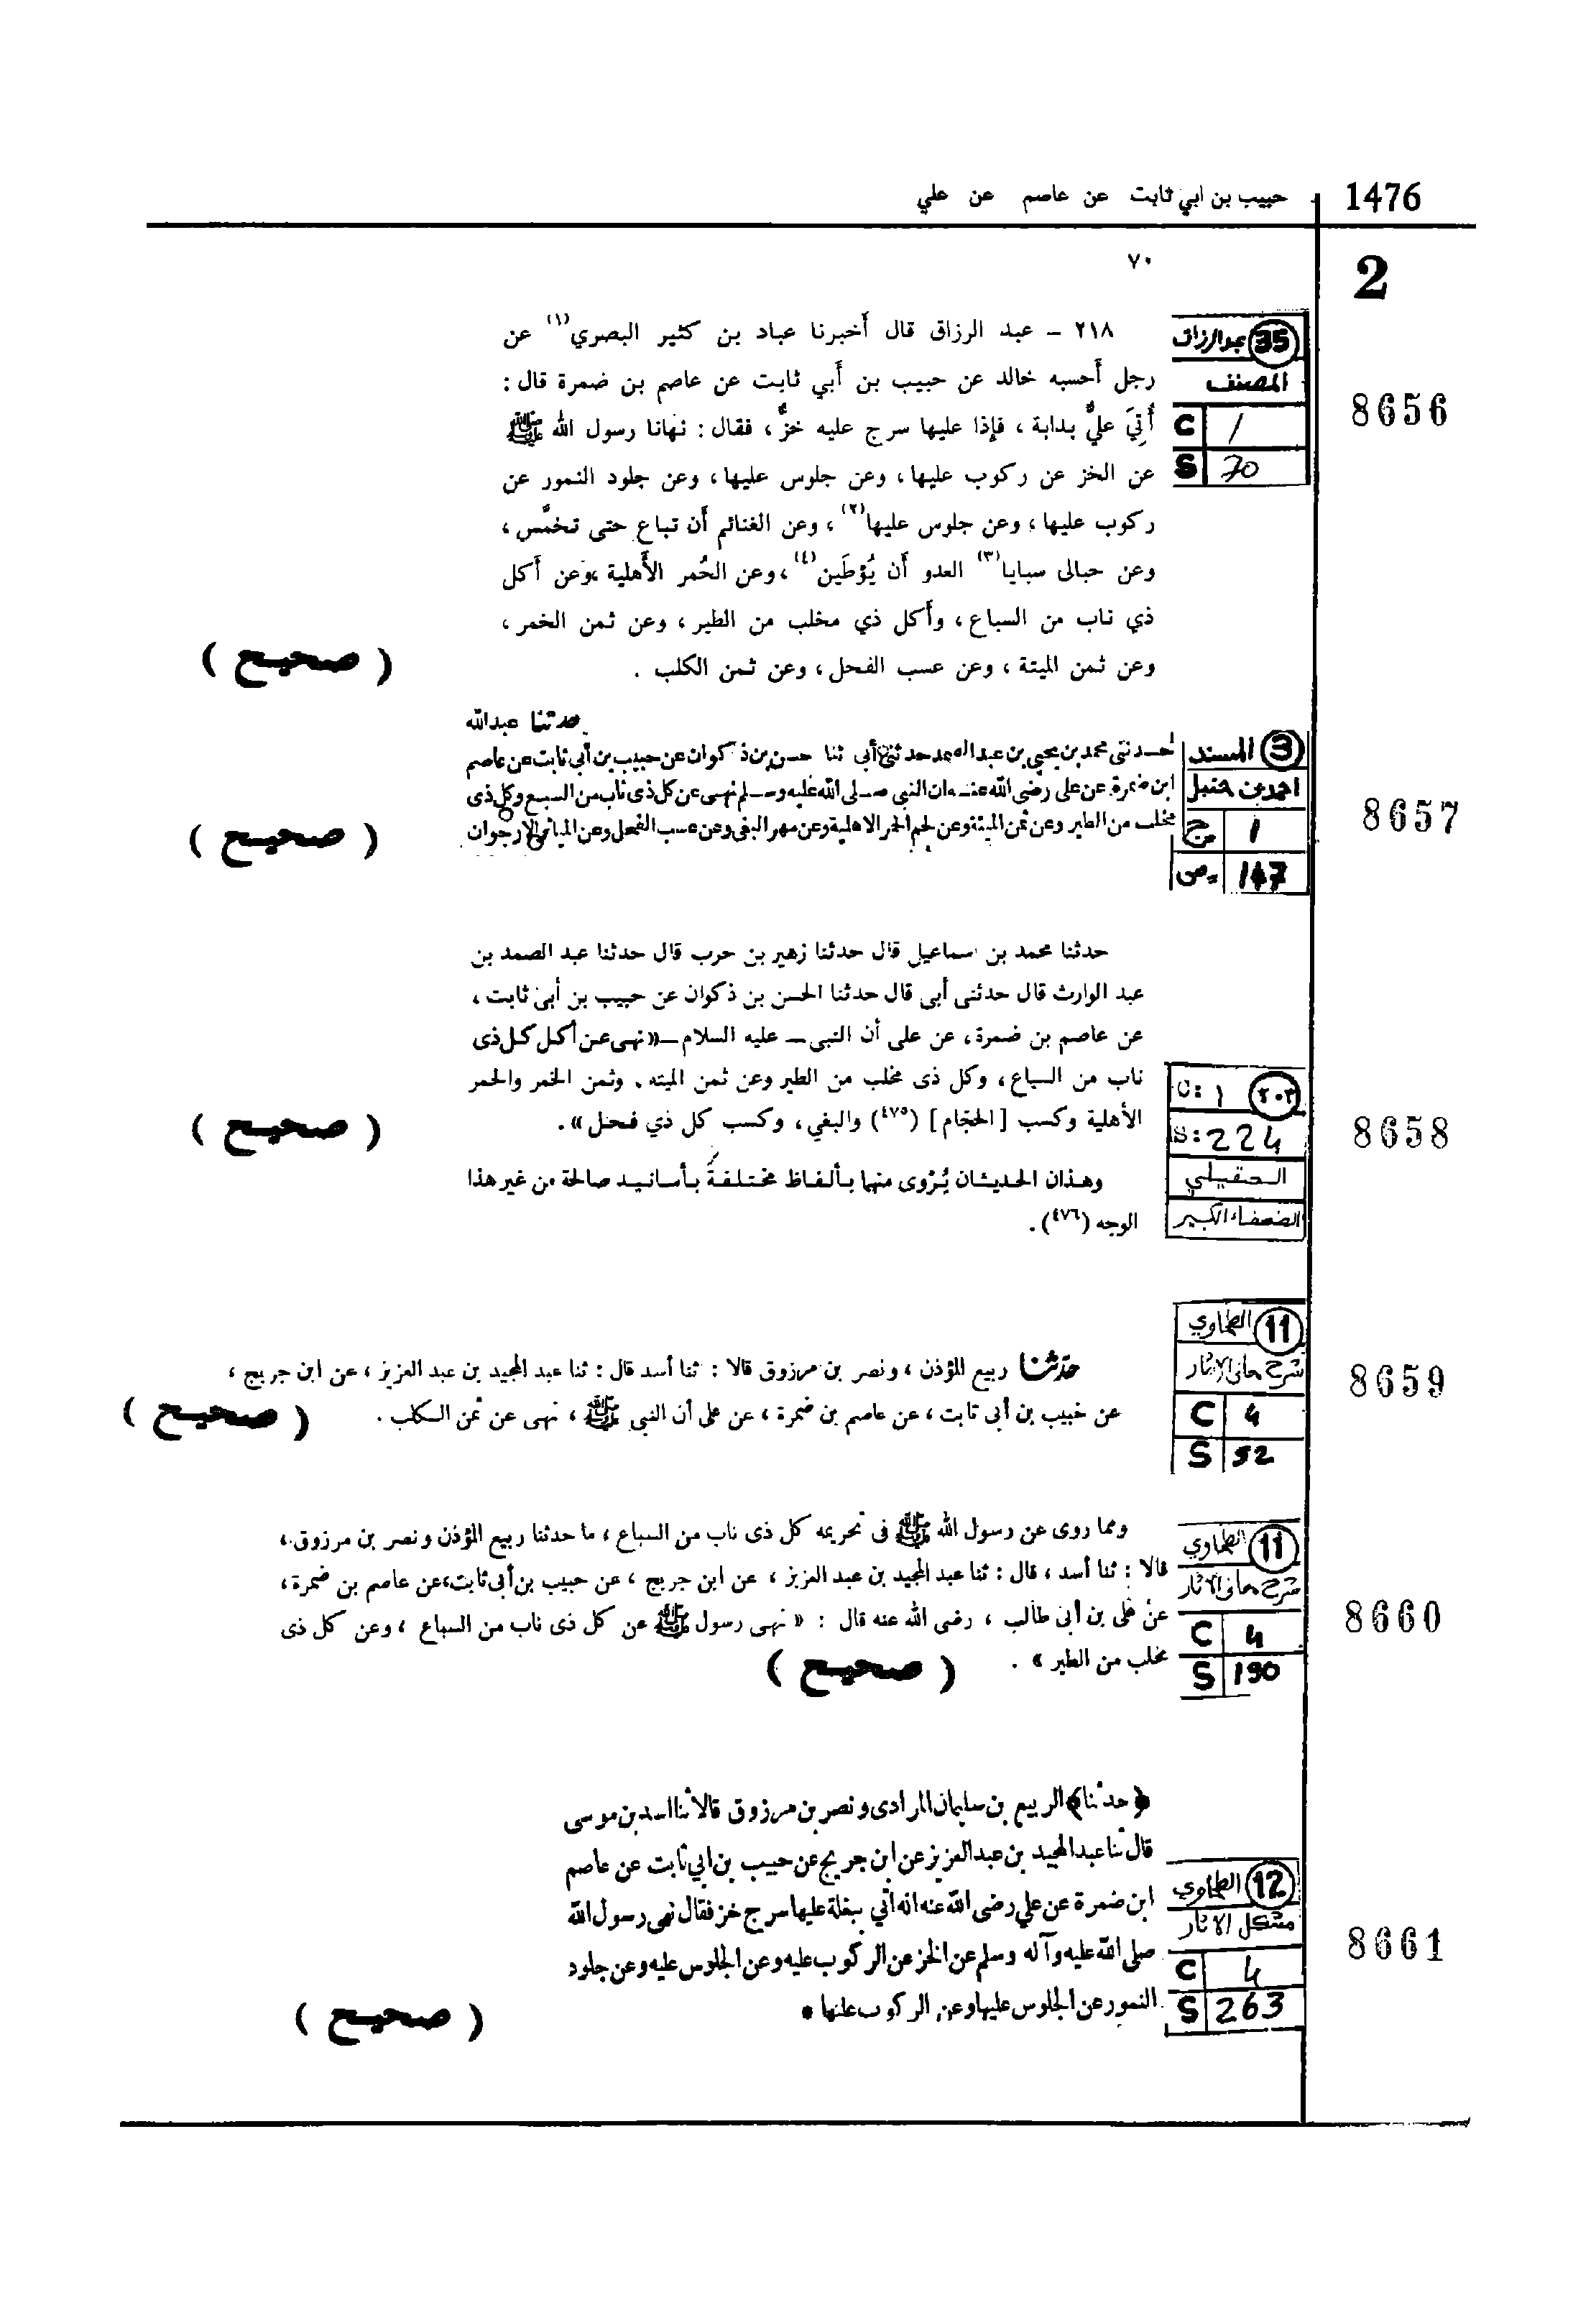 1476
حبيب بن ابي ثابت عن عاصم عن علي
2
٧٠
٢١٨ – عبد الرزاق قال أخبرنا عباد بن كثير البصري(١) عن
رجل أحسبه خالد عن حبيب بن أبي ثابت عن عاصم بن ضمرة قال :
أُتِيَ عليٌّ بدابة ، فإذا عليها سرج عليه خزٌّ ، فقال : نهانا رسول الله ﷺ
عن الخز عن ركوب عليها ، وعن جلوس عليها ، وعن جلود النمور عن
ركوب عليها ، وعن جلوس عليها(٢) ، وعن الغنائم أن تباع حتى تخمَّس ،
وعن حبالى سبايا(٣) العدو أن يُؤطَين(٤) ، وعن الحُمر الأهلية ، وعن أكل
ذي ناب من السباع ، وأكل ذي مخلب من الطير ، وعن ثمن الخمر ،
وعن ثمن الميتة ، وعن عسب الفحل ، وعن ثمن الكلب .
( صحيح )
35 عبد الرزاق
المصنف
C 1
S 70
8656
حدثنا عبدالله
حدثني محمد بن يحيى بن عبد الصمد حدثني أبي ثنا حسن بن ذكوان عن حبيب بن أبي ثابت عن عاصم
ابن ضمرة عن على رضى الله عنه ان النبي صلى الله عليه وسلم نهى عن كل ذى ناب من السبع وكل ذى
مخلب من الطير وعن ثمن الميتة وعن لحم الحمر الاهلية وعن مهر البغى وعن عسب الفحل وعن المياثر الارجوان
( صحيح )
3 المسند
احمد بن حنبل
ج 1
ص 147
8657
حدثنا محمد بن اسماعيل قال حدثنا زهير بن حرب قال حدثنا عبد الصمد بن
عبد الوارث قال حدثنى أبى قال حدثنا الحسن بن ذكوان عن حبيب بن أبى ثابت ،
عن عاصم بن ضمرة ، عن على أن النبى – عليه السلام – «نهى عن أكل كل ذى
ناب من السباع ، وكل ذى مخلب من الطير وعن ثمن الميته . وثمن الخمر والحمر
الأهلية وكسب [ الحجام ] (٤٧٥) والبغي ، وكسب كل ذي فحل» .
( صحيح )
وهذان الحديثان يُرْوى منهما بألفاظ مختلفةٌ بأسانيد صالحة من غير هذا
الوجه (٤٧٦) .
٢٠٣ C: 1
S: 224
العقيلي
الضعفاء الكبير
8658
حدّثنا ربيع المؤذن ، ونصر بن مرزوق قالا : ثنا أسد قال : ثنا عبد المجيد بن عبد العزيز ، عن ابن جريج ،
عن خبيب بن أبى ثابت ، عن عاصم بن ضمرة ، عن على أن النبى ﷺ ، نهى عن ثمن الكلب .
( صحيح )
11 الطحاوي
شرح معاني الاثار
C 4
S 52
8659
ومما روى عن رسول الله ﷺ فى تحريمه كل ذى ناب من السباع ، ما حدثنا ربيع المؤذن ونصر بن مرزوق ،
قالا : ثنا أسد ، قال : ثنا عبد المجيد بن عبد العزيز ، عن ابن جريج ، عن حبيب بن أبى ثابت ، عن عاصم بن ضمرة ،
عن على بن أبى طالب ، رضى الله عنه قال : « نهى رسول ﷺ عن كل ذى ناب من السباع ، وعن كل ذى
مخلب من الطير » .
( صحيح )
11 الطحاوي
شرح معاني الاثار
C 4
S 190
8660
﴿حدثنا﴾ الربيع بن سليمان المرادى ونصر بن مرزوق قالا ثنا اسد بن موسى
قال ثنا عبد المجيد بن عبد العزيز عن ابن جريج عن حبيب بن ابي ثابت عن عاصم
ابن ضمرة عن علي رضى الله عنه انه اتي ببغلة عليها سرج خز فقال نهى رسول الله
صلى الله عليه وآله وسلم عن الخز عن الركوب عليه وعن الجلوس عليه وعن جلود
النمور عن الجلوس عليها وعن الركوب عليها *
( صحيح )
12 الطحاوي
مشكل الاثار
C 4
S 263
8661